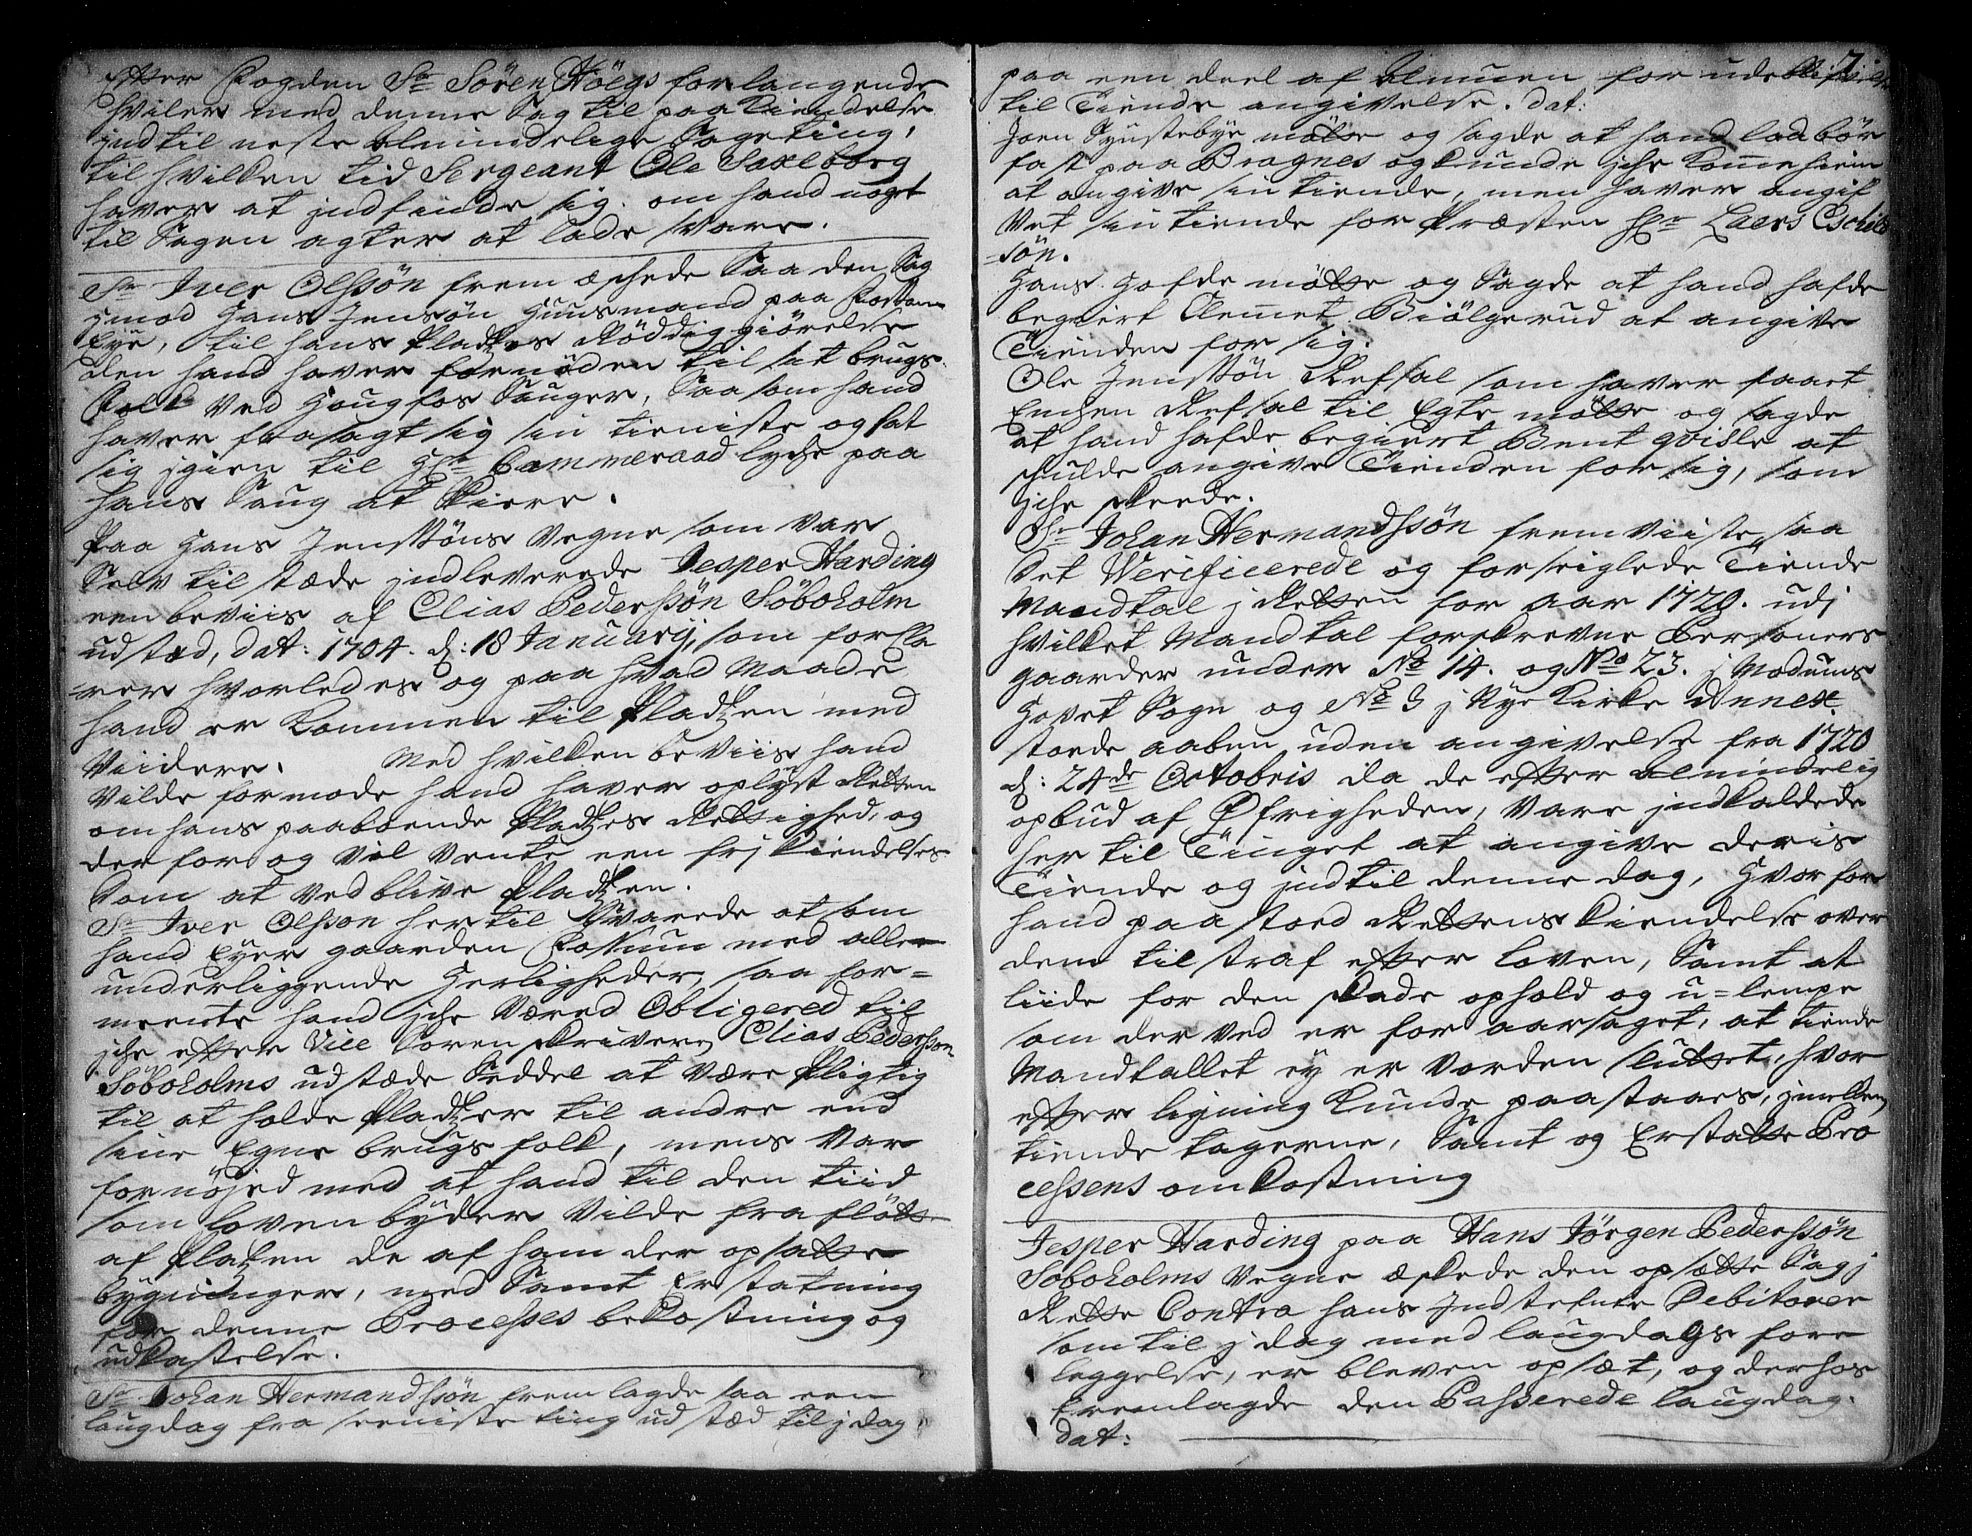 Efter Fogden Sr Sören Höegs forlangende
hviler med denne Sag til paa Kiendelse
indtil neste almindelige Sageting,
til hvilken tid Sergeant Ole Saxeborg
haver at indfinde sig. om hand noget
til Sagen agter at lade svare.
Sr Iver Olssön fremæschede Saa den Sag
imod Hans Jensön Huusmand paa Fossum
Eye, til hans Pladzes Röddiggiörelse
den hand haver fornöden til sit brugs
Folk ved Hougfos Sauger, Saasom hand
haver frasagt sig sin tieniste og sat
sig igien til Hr Cammeraad Lyche paa
hans Saug at Skiere.
Paa Hans Jenssöns Vegne som var
Selv til stæde indleverede Jesper Harding
een beviis af Elias Pederssön Söboholm
udstæd, dat: 1704. d: 18 Januarij, som forkla
rer hvorledes og paa hvad Maade
hand er kommen til Pladzen med
Viidere. Med hvilken beviis hand
Vilde formode hand haver oplyst Retten
om hans paaboende Pladzes Rettighed, og
der for og vil vente een frj Kiendelse
Som at ved blive Pladzen.
Sr Iver Olsson hertil Svarede at som
hand Eyer gaarden Fossum med alle
underliggende Herligheder, saa for=
meente hand iche været Obligered til
iche efter Vice Sorenskriver Elias Pederssön
Söboholms udstæde Seddel at være Pligtig
til at holde Pladzer til andre end
sine Egne brugsfolk, mens var
fornöjed med at hand til den tiid
som loven byder vilde fraflötte
af Pladzen de af ham der opsatte
bygninger, med Samt Erstatning
for denne Processes bekostning og
udkastelse.
Sr Johan Hermandssön fremlagde saa een
laugdag fra seeniste ting udstæd til j dag
7.
paa een deel af Almuen for udeblifvelse
til Tiende angivelse. dat:
Joen Synstebye mötte og sagde at hand laae bör
fast paa Bragnes og kunde iche komme hiem
at angive sin tiende, men haver angif
vet sin tiende for Præsten Hr Laers Eschild
=sön.
Hans Hofde mötte og Sagde at hand hafde
begiert Clemet Biölgerud at angive
Tienden for sig.
Ole Jenssön Refsal som haver faaet
Enchen Refsal til Egte mötte og sagde
at hand hafde begiert Bent qvisle at
schulde angive Tienden for sig, som
iche skeede.
Sr Johan Hermandssön fremviiste saa
det Verificerede og forseiglede Tiende
Mandtal j Retten for aar 1720. udj
hvilket Mandtal forskrevne Personers
gaarder under No 14. og No 23. j Modums
Hovet Sogn og No 3 j Nye Kirke Annex
stoede aaben uden angivelse fra 1720
d: 24de Octobris da de efter almindelig
opbud af Øfrigheden, vare indkaldede
her til Tinget at angive deris
Tiende og indtil denne dag, Hvorfor
hand paastoed Rettens Kiendelse over
dem til straf efter Loven, Samt at
liide for den skade ophold og u=lempe
som der ved er foraarsaget, at tiende
Mandtallet ey er vorden sluttet, hvor
efter ligning kunde paastaaes, imellem
tiende tagerne, Samt og Erstatte Pro
cessens omkostning
Jesper Harding paa Hans Jörgen Pederssön
Soboholms Vegne æskede den opsætte Sag j
Rette Contra hans Indstefnte Debitorer
som til j dag med laugdags fore
leggelse, er bleven opsæt, og derhos
fremlagde den Passerede laugdag.
dat: